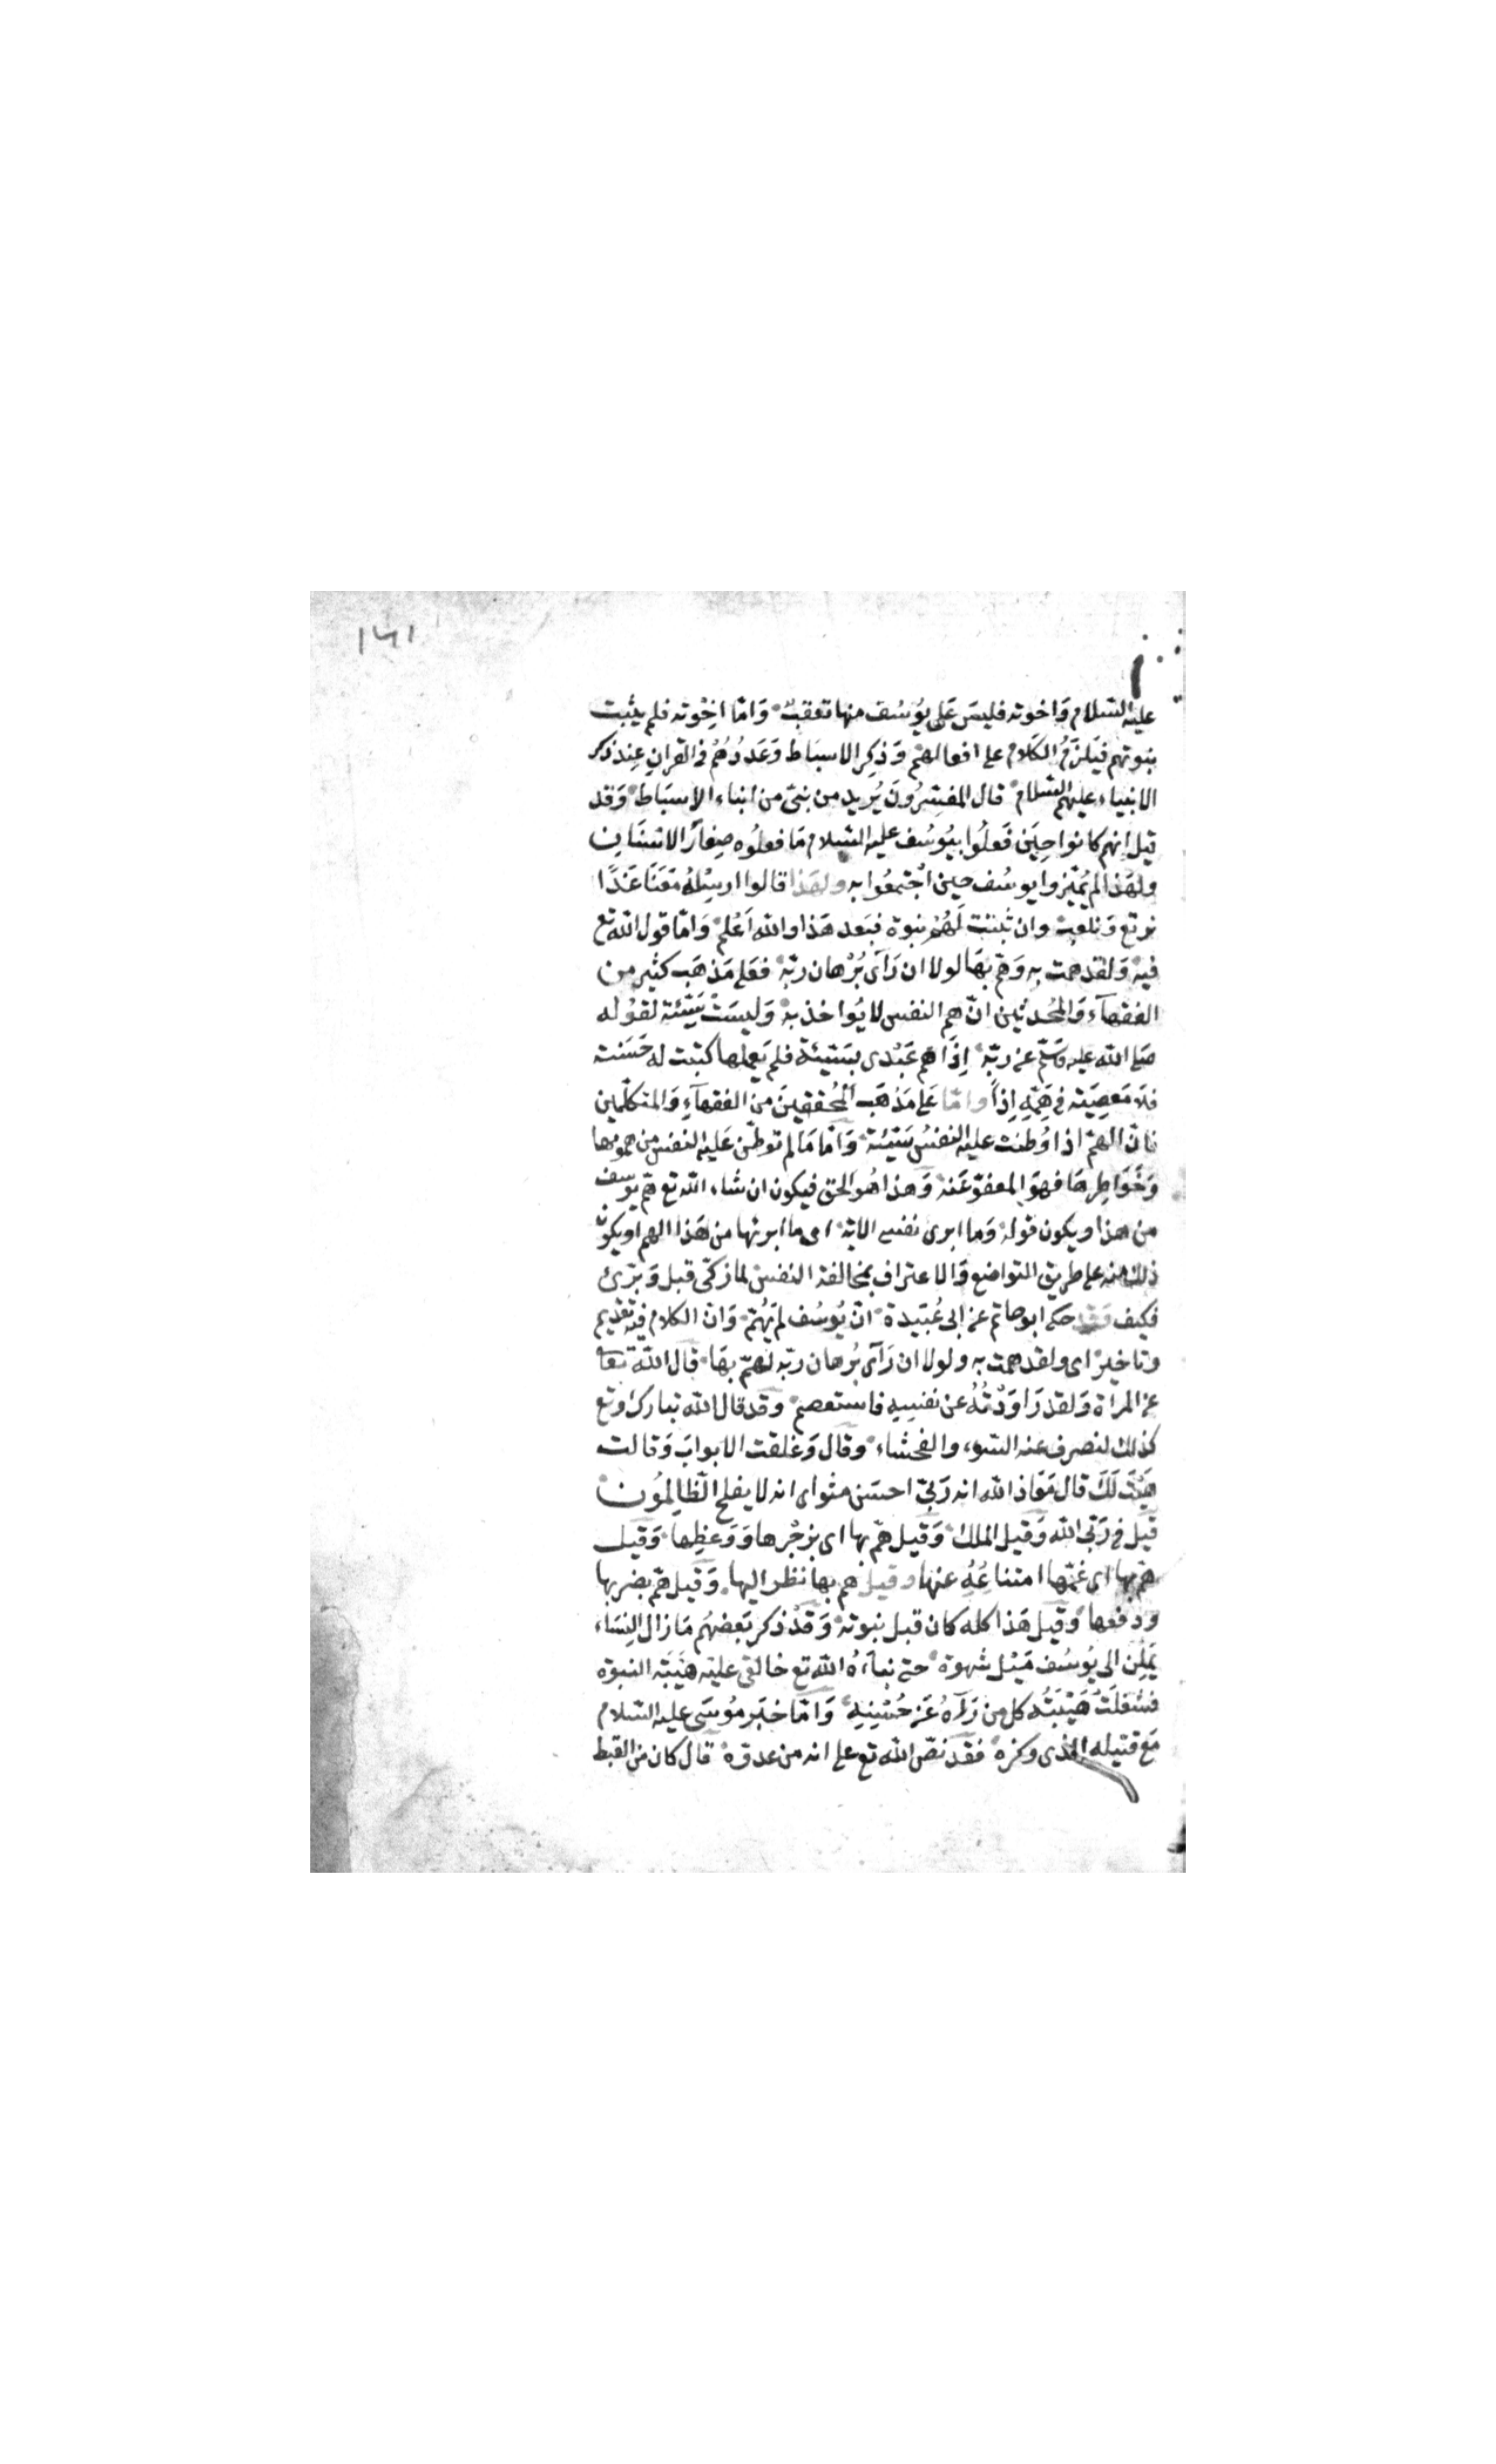 ١٤١
عليه السلام وَاخوته فليسَ عَلى يوُسُف منها تعقبٌ وَامّا اخِوته فلم يثبت
نبوتهم فيَلزَمُ الكلامُ على افعالهمْ وَذِكِر الاسبَاط وَعَددُهُمْ في القرانِ عِند ذكر
الانبياء عليهم السّلام قال المفسّرُونَ يُريد من نبّئ من ابناء الاسبَاط وَقد
قيل انهم كانوا حِينَ فَعلُوا بيُوسُف عليه السّلام مَا فعلُوه صِغارَ الاسنَان
ولهذا لم يُميّزوا يوسُف حين اجْتمعُوا به ولهذا قالوا ارسِلْهُ مَعَنا غَدًا
نرتع وَنلعب وان ثبتت لَهُمْ نبوة فبَعد هَذا والله اَعْلم وَامّا قول الله تع
فيه وَلقد همّت بِه وَهَمّ بهَا لولا ان رَآى بُرْهان ربّه فعَلى مَذهَب كثير من
الفقهآء وَالمحُدثين انّ هم النفس لا يُواخذ به وَليسَتْ سَيّئة لقوُله
صَلى الله عليه وَسَلّم عن ربّه اِذَا هَم عَبْدى بسَيئة فلم يَعملها كتبت له حَسَنة
فلا مَعصِيَة فى هَمّهِ اِذاً وامّا عَلى مَذهَب المُحققينَ منَ الفقهآءِ وَالمتكلّمين
فانّ الهمّ اذا وُطنت عليه النفسُ سَيّئة وَامّا مَا لم توطّن عَليه النفس من همُومها
وَخَوَاطِرهَا فهوَ المعفوّ عَنهُ وَهذا هُوَ الحق فيكون ان شاء الله تع همّ يوسف
من هذا ويكون قوله وَما ابرى نفسى الاية اى ما ابرئها من هَذا الهم او يكون
ذلك منه على طريق التواضع وَالاعتراف بمخالفة النفس لما زكّى قبل وَبرّئ
فكيف وقد حكى ابو حاتم عن ابى عُبَيدة انّ يُوسُف لم يَهُمّ وَانّ الكلام فيه تقديم
وتاخير اى ولقد همت به ولولا ان رَآى بُرهان ربّه لهمّ بهَا قال الله تعا
عن المراة وَلقد رَاوَدْتُهُ عن نفسِهِ فاستعصم وقد قال الله تبارك وتع
كذلك لنصرف عنه السّوء والفحشاء وقال وَغلقت الابوابَ وَقالت
هَيْتَ لَكَ قال مَعَاذ الله انه رَبّى احسَن مثواى انه لا يفلح الظّالِمُون
قيل فى رَبّى الله وَقيل الملك وَقيل همّ بها اى بزجْرها وَوَعظِها وَقيل
همّ بها اى غمّها امتناعُهُ عنها وقيل هم بها نظر اليها وَقيل همّ بضربها
ودفعها وقيل هَذا كله كان قبل نبوته وَقدْ ذكر بَعضهُم مَا زال النِسَاء
يَمِلْن الى يوُسُف مَيْل شهوة حتى نبأهُ الله تع فالقى عليه هَيْبَة النبوة
فشغلَتْ هَيْبَتُه كل من رَآهُ عَن حُسْنِهِ وَامّا خبَر مُوسَى عليه السّلام
مَعَ قتيله الذى وكزه فقد نصّ الله تع على انه من عدوّه قال كان من القبط